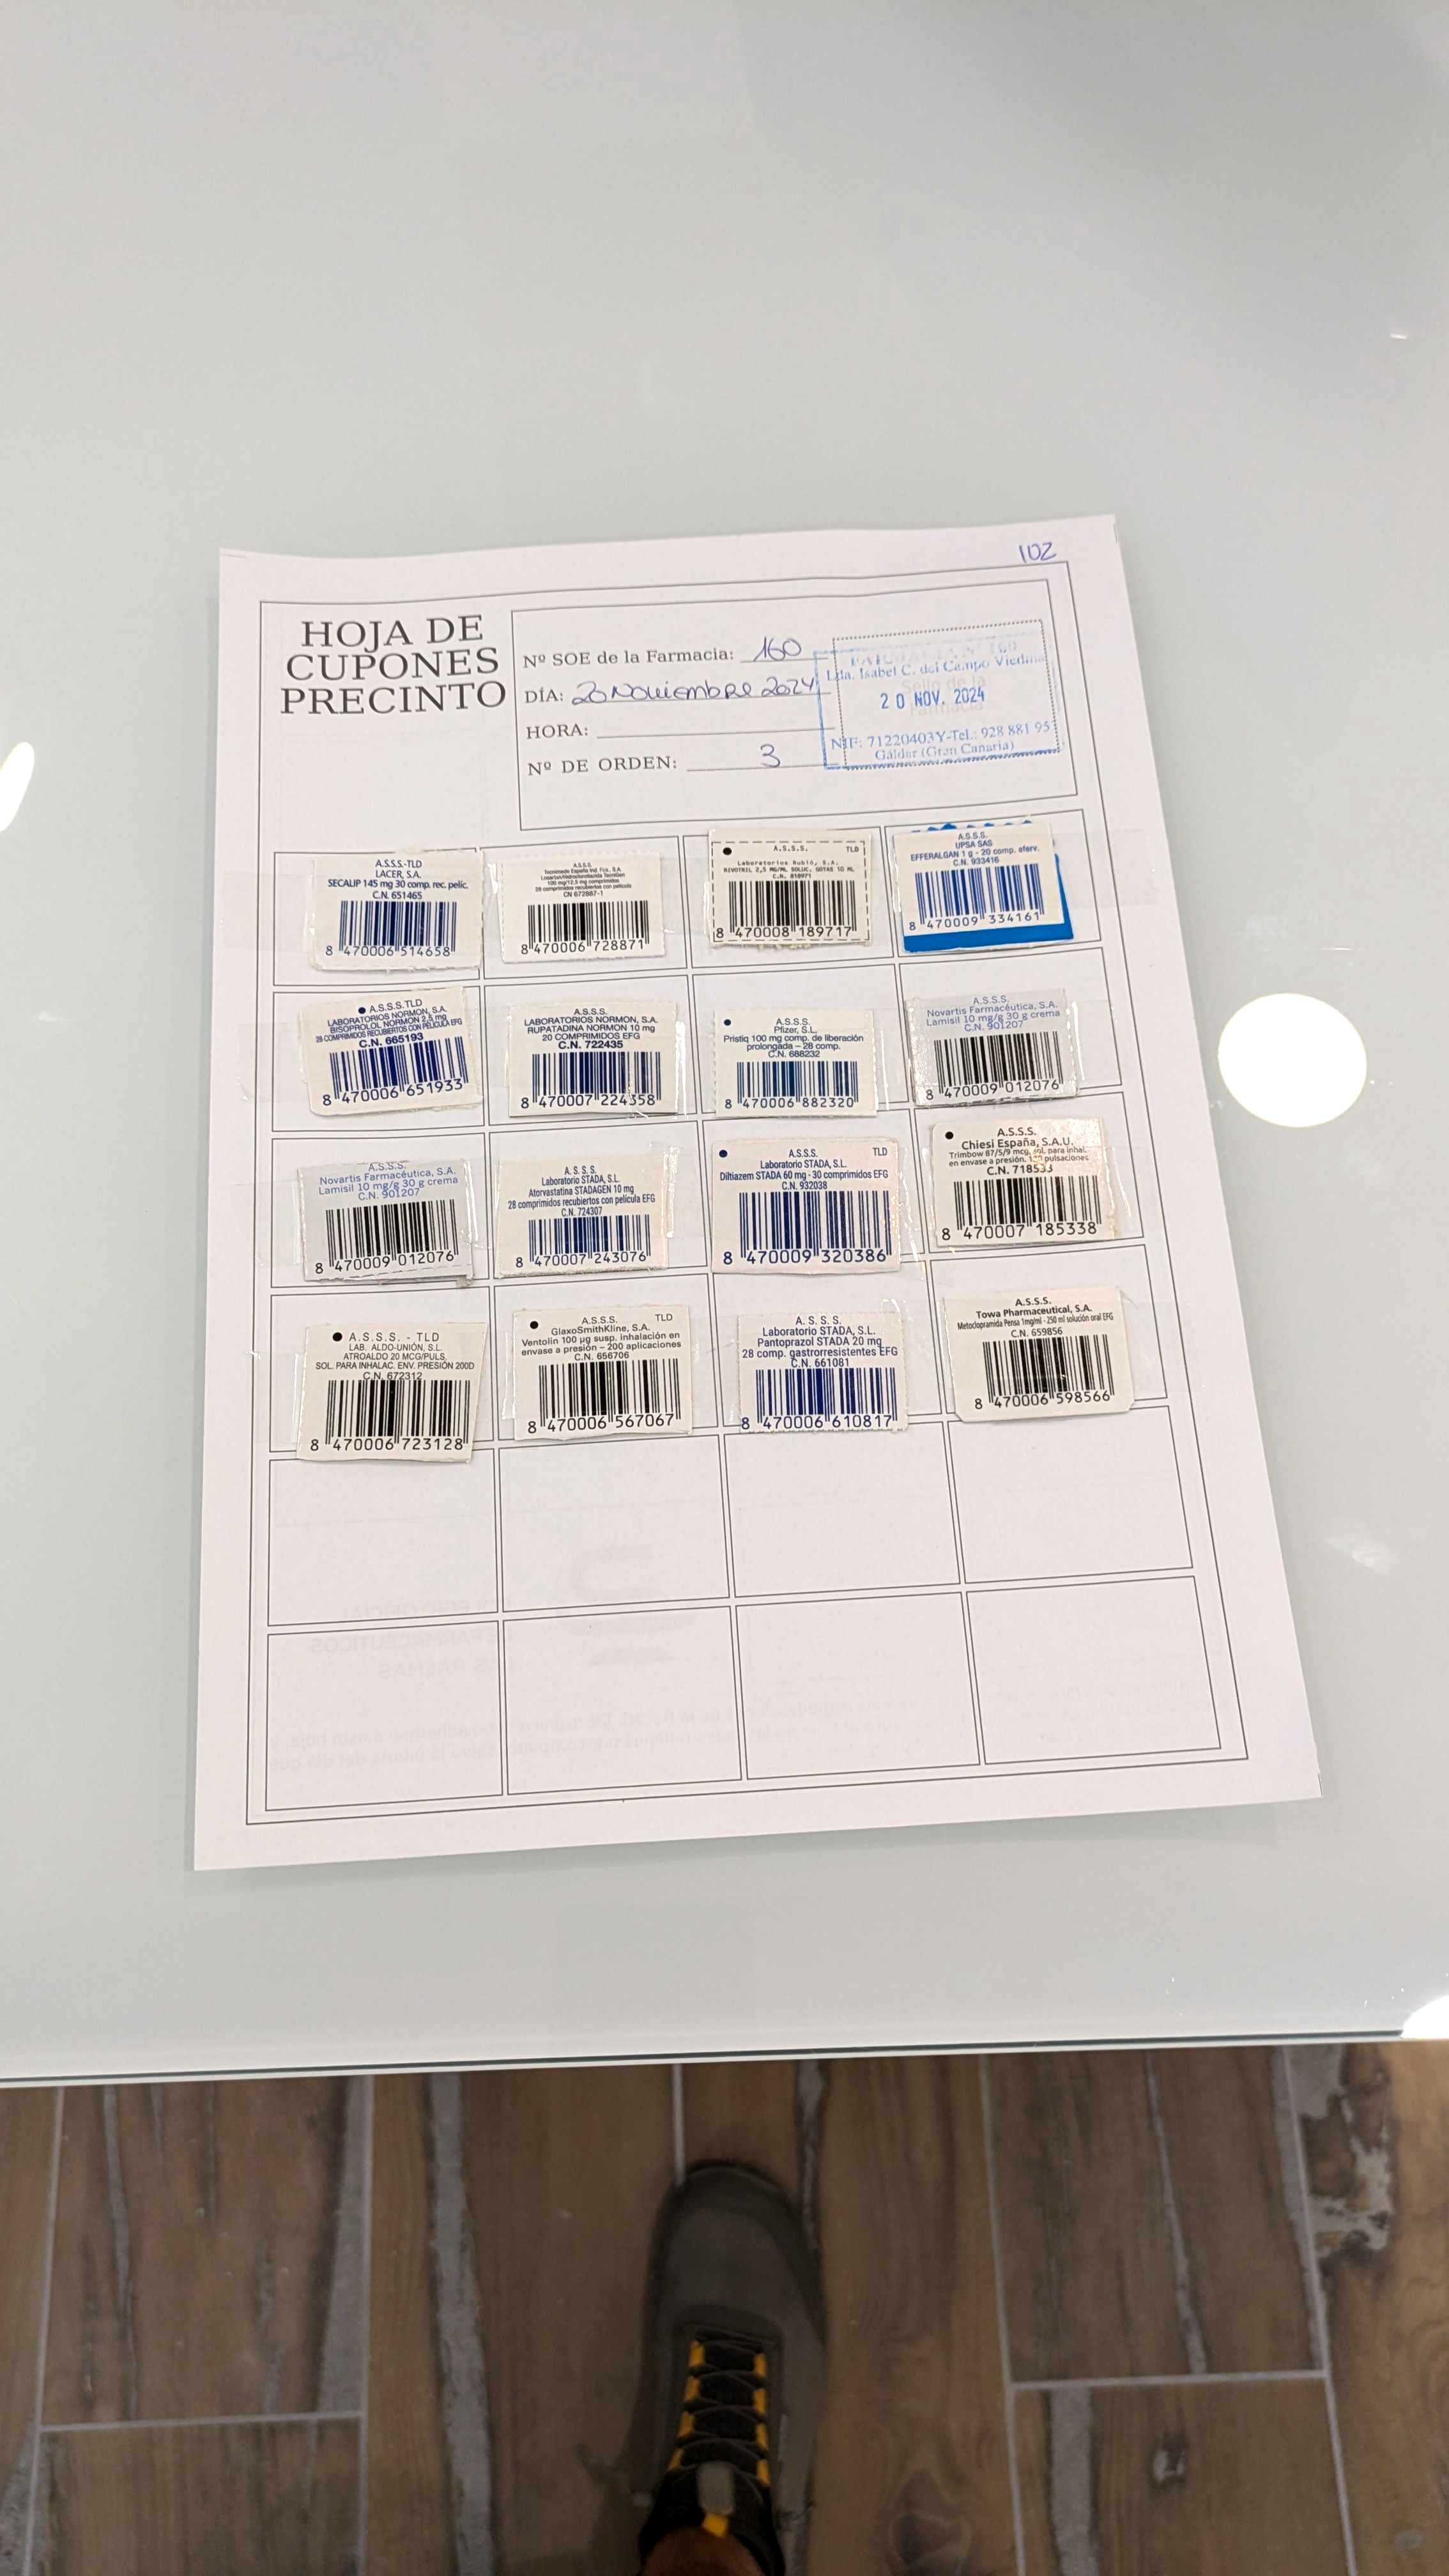 102
HOJA DE
CUPONES
PRECINTO
Nº SOE de la Farmacia: 160
DÍA: 20 Noviembre 2024
HORA:
Nº DE ORDEN: 3
Lda. Isabel C. del Campo Viedma
Sello de la
Farmacia
20 NOV. 2024
NIF: 71220403Y-Tel.: 928 881 95
Gáldar (Gran Canaria)
A.S.S.S.-TLD
LACER, S.A.
SECALIP 145 mg 30 comp. rec. pelíc.
C.N. 651465
8 470006 514658
A.S.S.S.
Tecnimede España Ind. Fca., S.A.
Losartan/Hidroclorotiazida TecniGen
100 mg/12,5 mg comprimidos
28 comprimidos recubiertos con película
CN 672887-1
8 470006 728871
A.S.S.S. TLD
Laboratorios Rubió, S.A.
RIVOTRIL 2,5 MG/ML SOLUC. GOTAS 10 ML
C.N. 818971
8 470008 189717
A.S.S.S.
UPSA SAS
EFFERALGAN 1 g - 20 comp. eferv.
C.N. 933416
8 470009 334161
A.S.S.S. TLD
LABORATORIOS NORMON, S.A.
BISOPROLOL NORMON 2,5 mg
28 COMPRIMIDOS RECUBIERTOS CON PELICULA EFG
C.N. 665193
8 470006 651933
A.S.S.S.
LABORATORIOS NORMON, S.A.
RUPATADINA NORMON 10 mg
20 COMPRIMIDOS EFG
C.N. 722435
8 470007 224358
A.S.S.S.
Pfizer, S.L.
Pristiq 100 mg comp. de liberación
prolongada – 28 comp.
C.N. 688232
8 470006 882320
A.S.S.S.
Novartis Farmacéutica, S.A.
Lamisil 10 mg/g 30 g crema
C.N. 901207
8 470009 012076
A.S.S.S.
Novartis Farmacéutica, S.A.
Lamisil 10 mg/g 30 g crema
C.N. 901207
8 470009 012076
A. S. S. S.
Laboratorio STADA, S.L.
Atorvastatina STADAGEN 10 mg
28 comprimidos recubiertos con película EFG
C.N. 724307
8 470007 243076
A.S.S.S. TLD
Laboratorio STADA, S.L.
Diltiazem STADA 60 mg - 30 comprimidos EFG
C.N. 932038
8 470009 320386
A.S.S.S.
Chiesi España, S.A.U.
Trimbow 87/5/9 mcg, sol. para inhal.
en envase a presión. pulsaciones
C.N. 718533
8 470007 185338
A.S.S.S. - TLD
LAB. ALDO-UNIÓN, S.L.
ATROALDO 20 MCG/PULS.
SOL. PARA INHALAC. ENV. PRESIÓN 200D
C.N. 672312
8 470006 723128
A.S.S.S. TLD
GlaxoSmithKline, S.A.
Ventolin 100 µg susp. inhalación en
envase a presión – 200 aplicaciones
C.N. 656706
8 470006 567067
A. S. S. S.
Laboratorio STADA, S.L.
Pantoprazol STADA 20 mg
28 comp. gastrorresistentes EFG
C.N. 661081
8 470006 610817
A.S.S.S.
Towa Pharmaceutical, S.A.
Metoclopramida Pensa 1mg/ml - 250 ml solución oral EFG
C.N. 659856
8 470006 598566